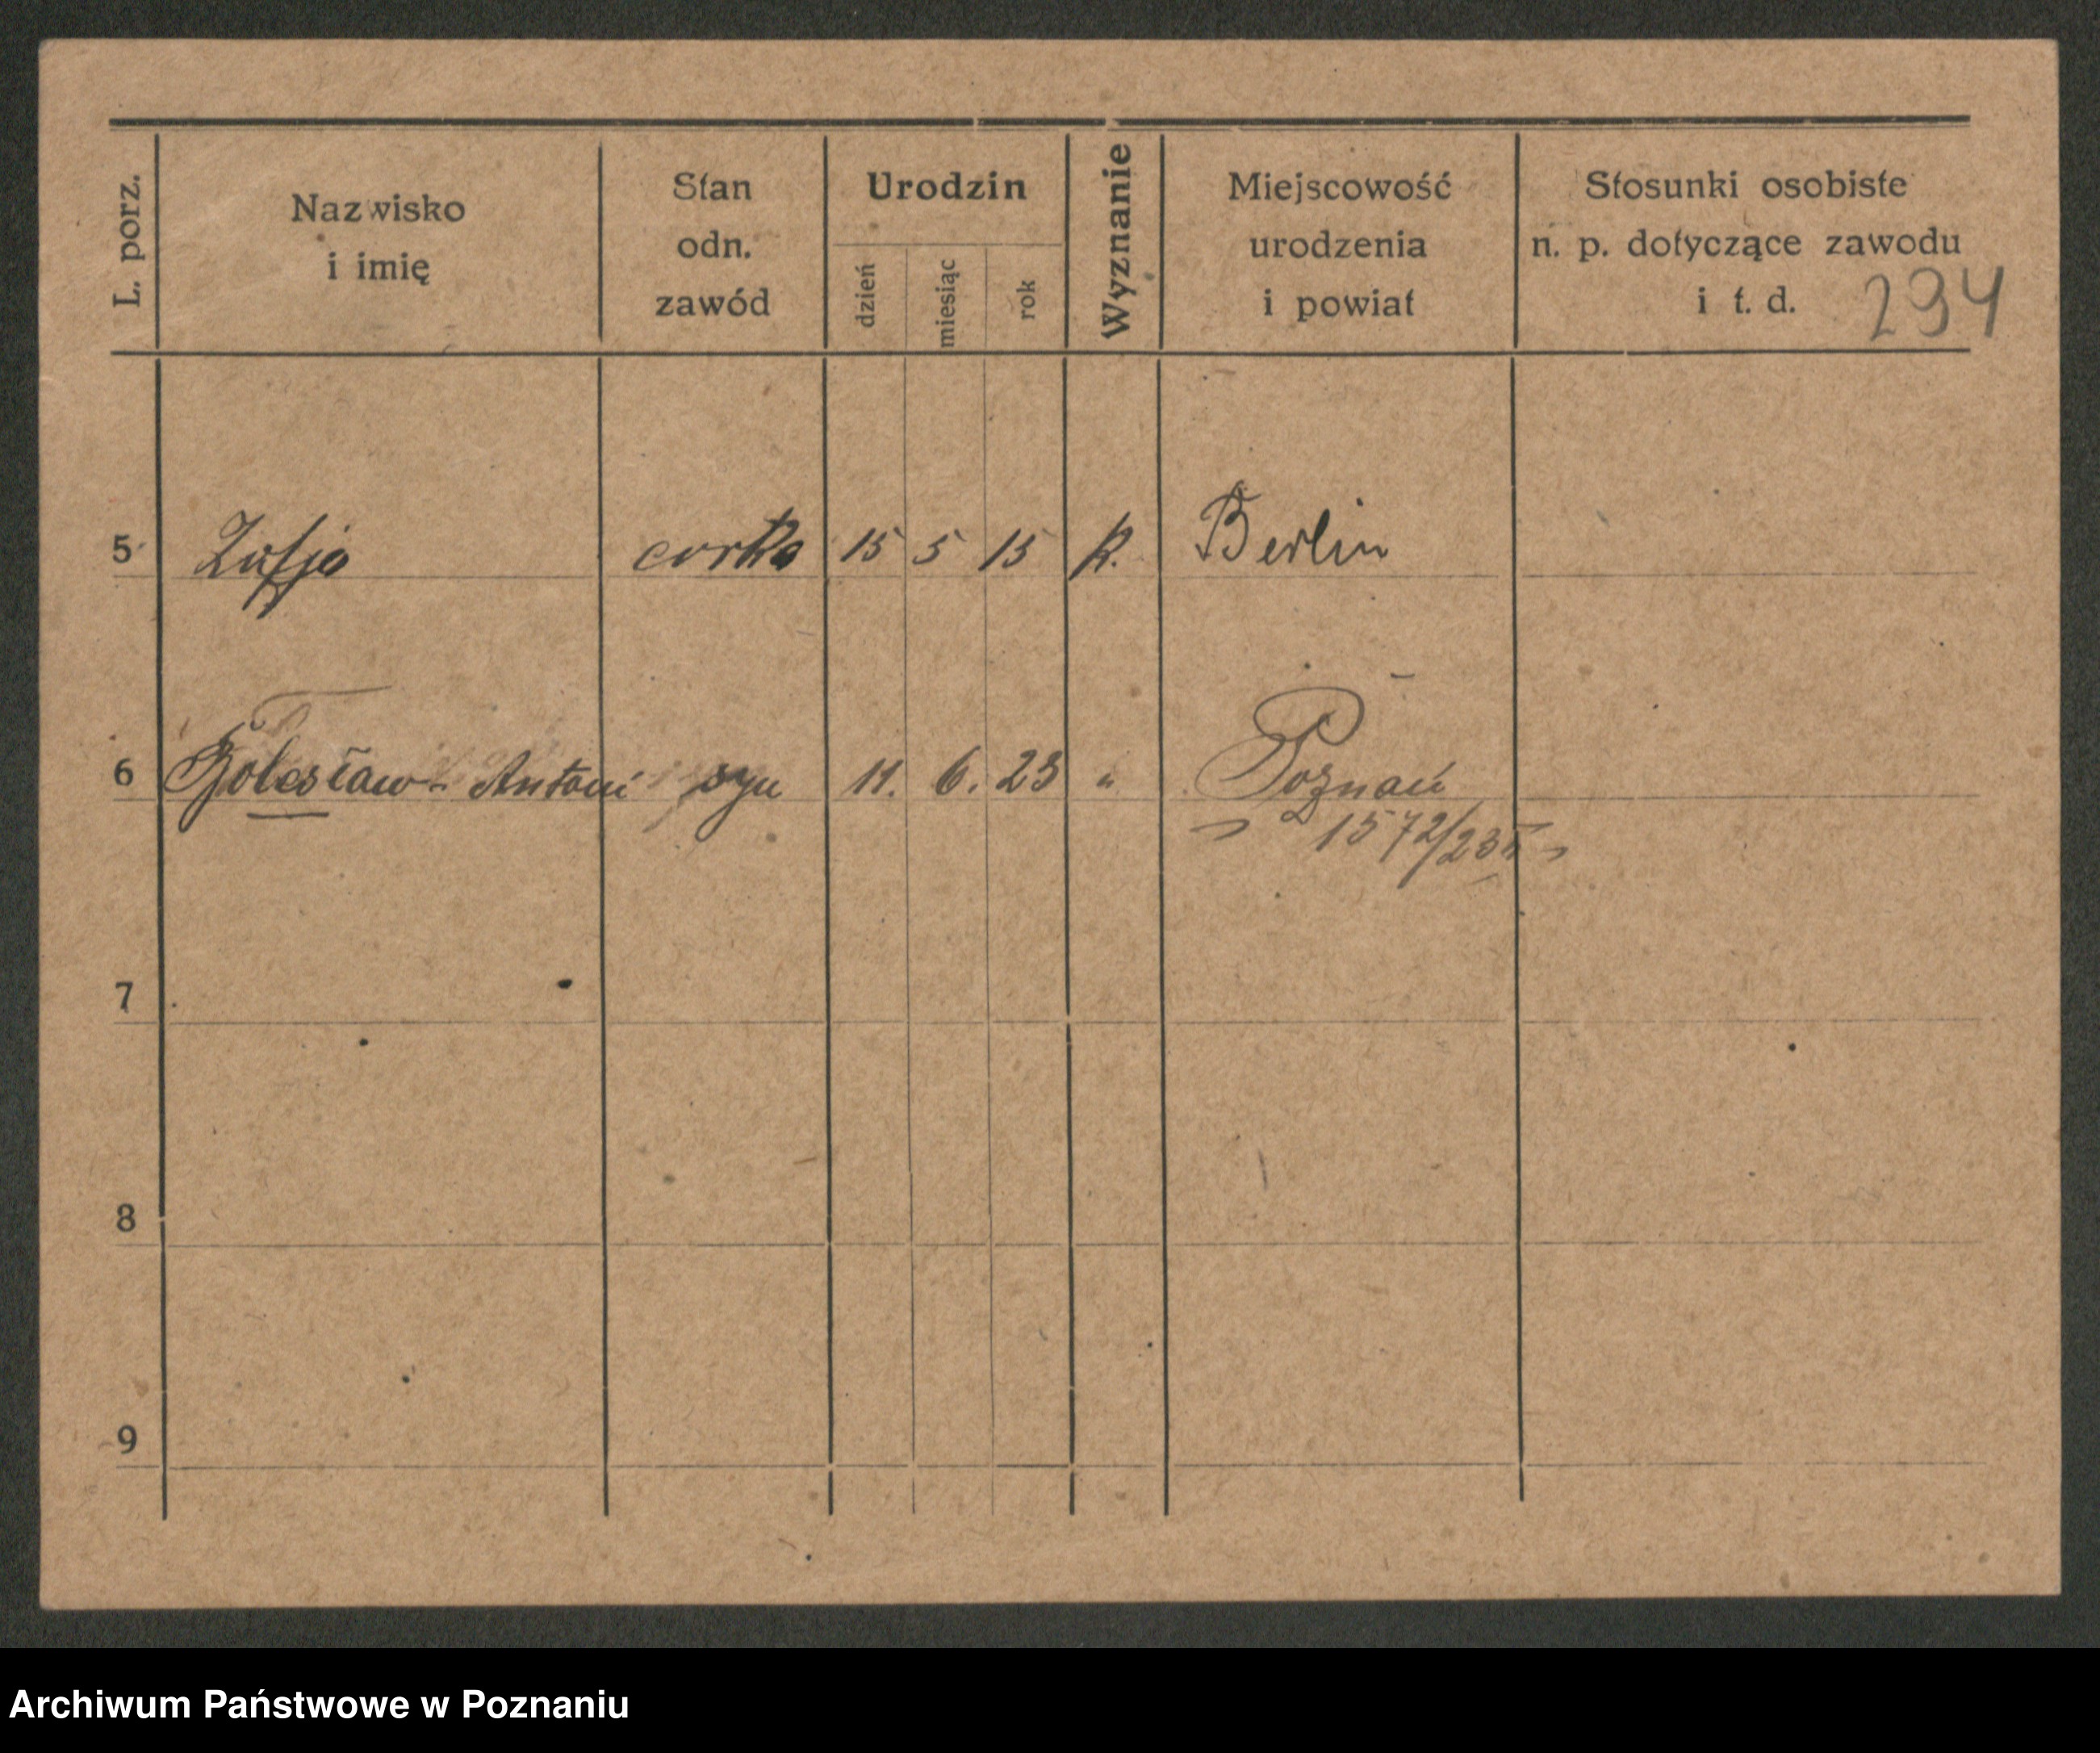 L. porz.
Nazwisko
i imię
Stan
odn.
zawód
Urodzin
dzień
miesiąc
rok
Wyznanie
Miejscowość
urodzenia
i powiat
Stosunki osobiste
n. p. dotyczące zawodu
i t. d.
294
5 Zofja corka 15 5 15 k. Berlin
6 Bolesław - Antoni syn 11. 6. 23 " Poznań
1572/23
7
8
9
Archiwum Państwowe w Poznaniu